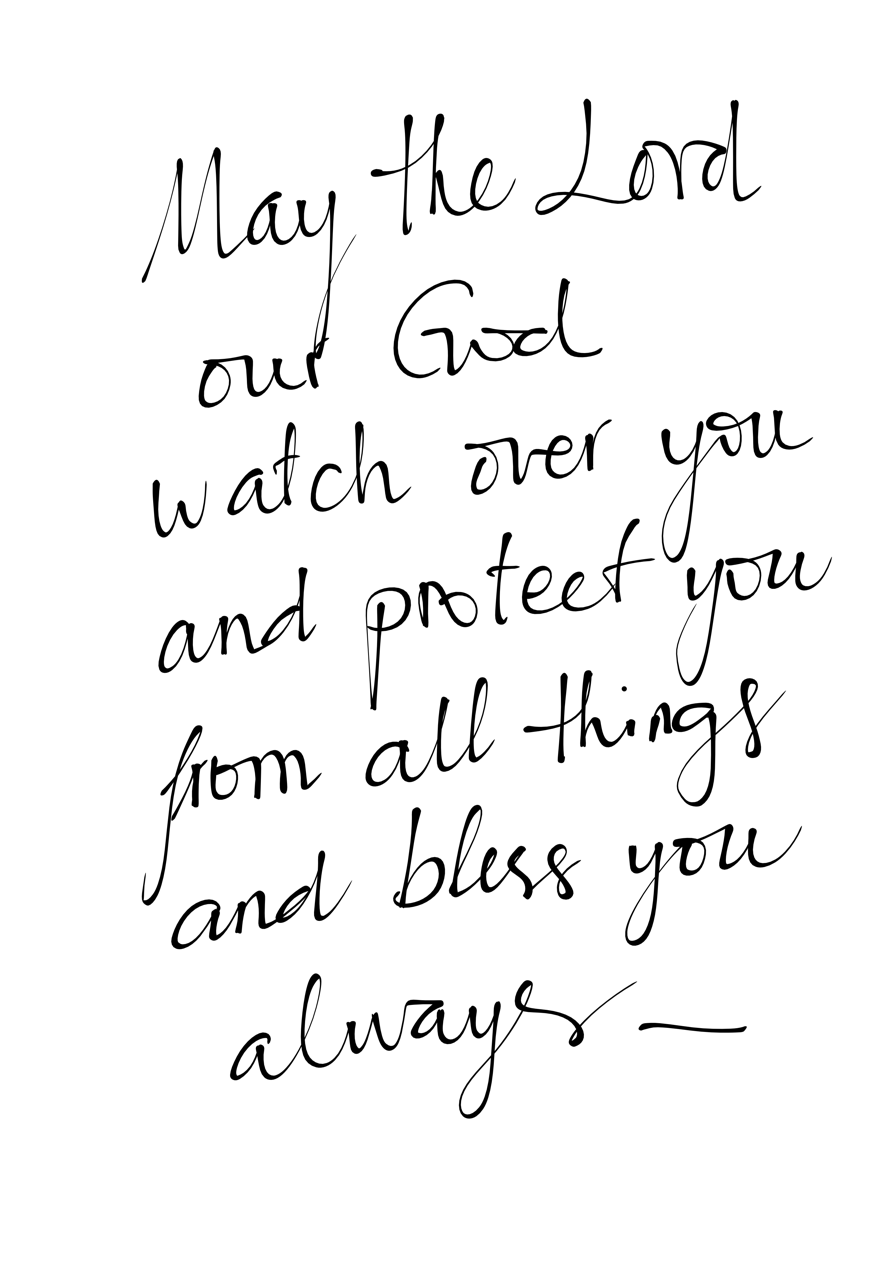 May the Lord
our God
watch over you
and protect you
from all things
and bless you
always—